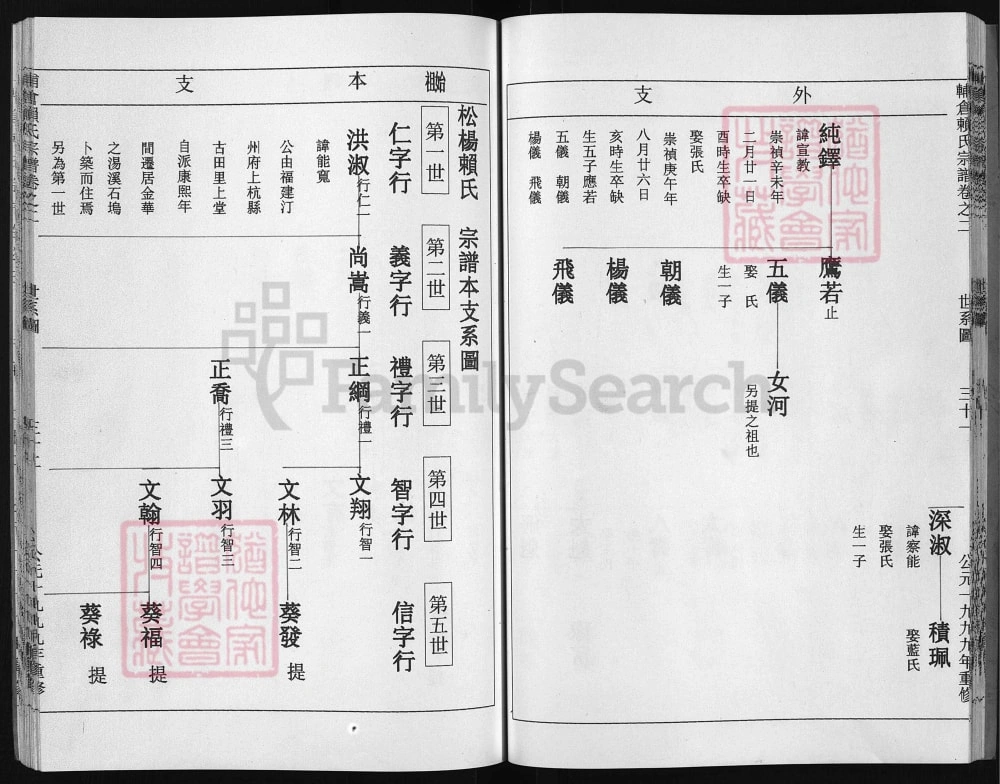 輔倉賴氏宗譜卷之二
世系圖
三十一
公元一九九九年重修
外
支
深淑
諱察能
娶張氏
生一子
積珮
娶藍氏
純鐸
諱宣教
崇禎辛未年
二月廿一日
酉時生卒缺
娶張氏
崇禎庚午年
八月廿六日
亥時生卒缺
生五子應若
五儀 朝儀
楊儀 飛儀
鷹若止
五儀
娶 氏
生一子
女河
另提之祖也
朝儀
楊儀
飛儀
始祖
本
支
松楊賴氏 宗譜本支系圖
第一世
第二世
第三世
第四世
第五世
仁字行
義字行
禮字行
智字行
信字行
洪淑行仁一
諱能寬
公由福建汀
州府上杭縣
古田里上堂
自派康熙年
間遷居金華
之湯溪石塢
卜築而住焉
另為第一世
尚嵩行義一
正綱行禮一
正喬行禮三
文翔行智一
文林行智二
文羽行智三
文翰行智四
葵發 提
葵福 提
葵祿 提
FamilySearch